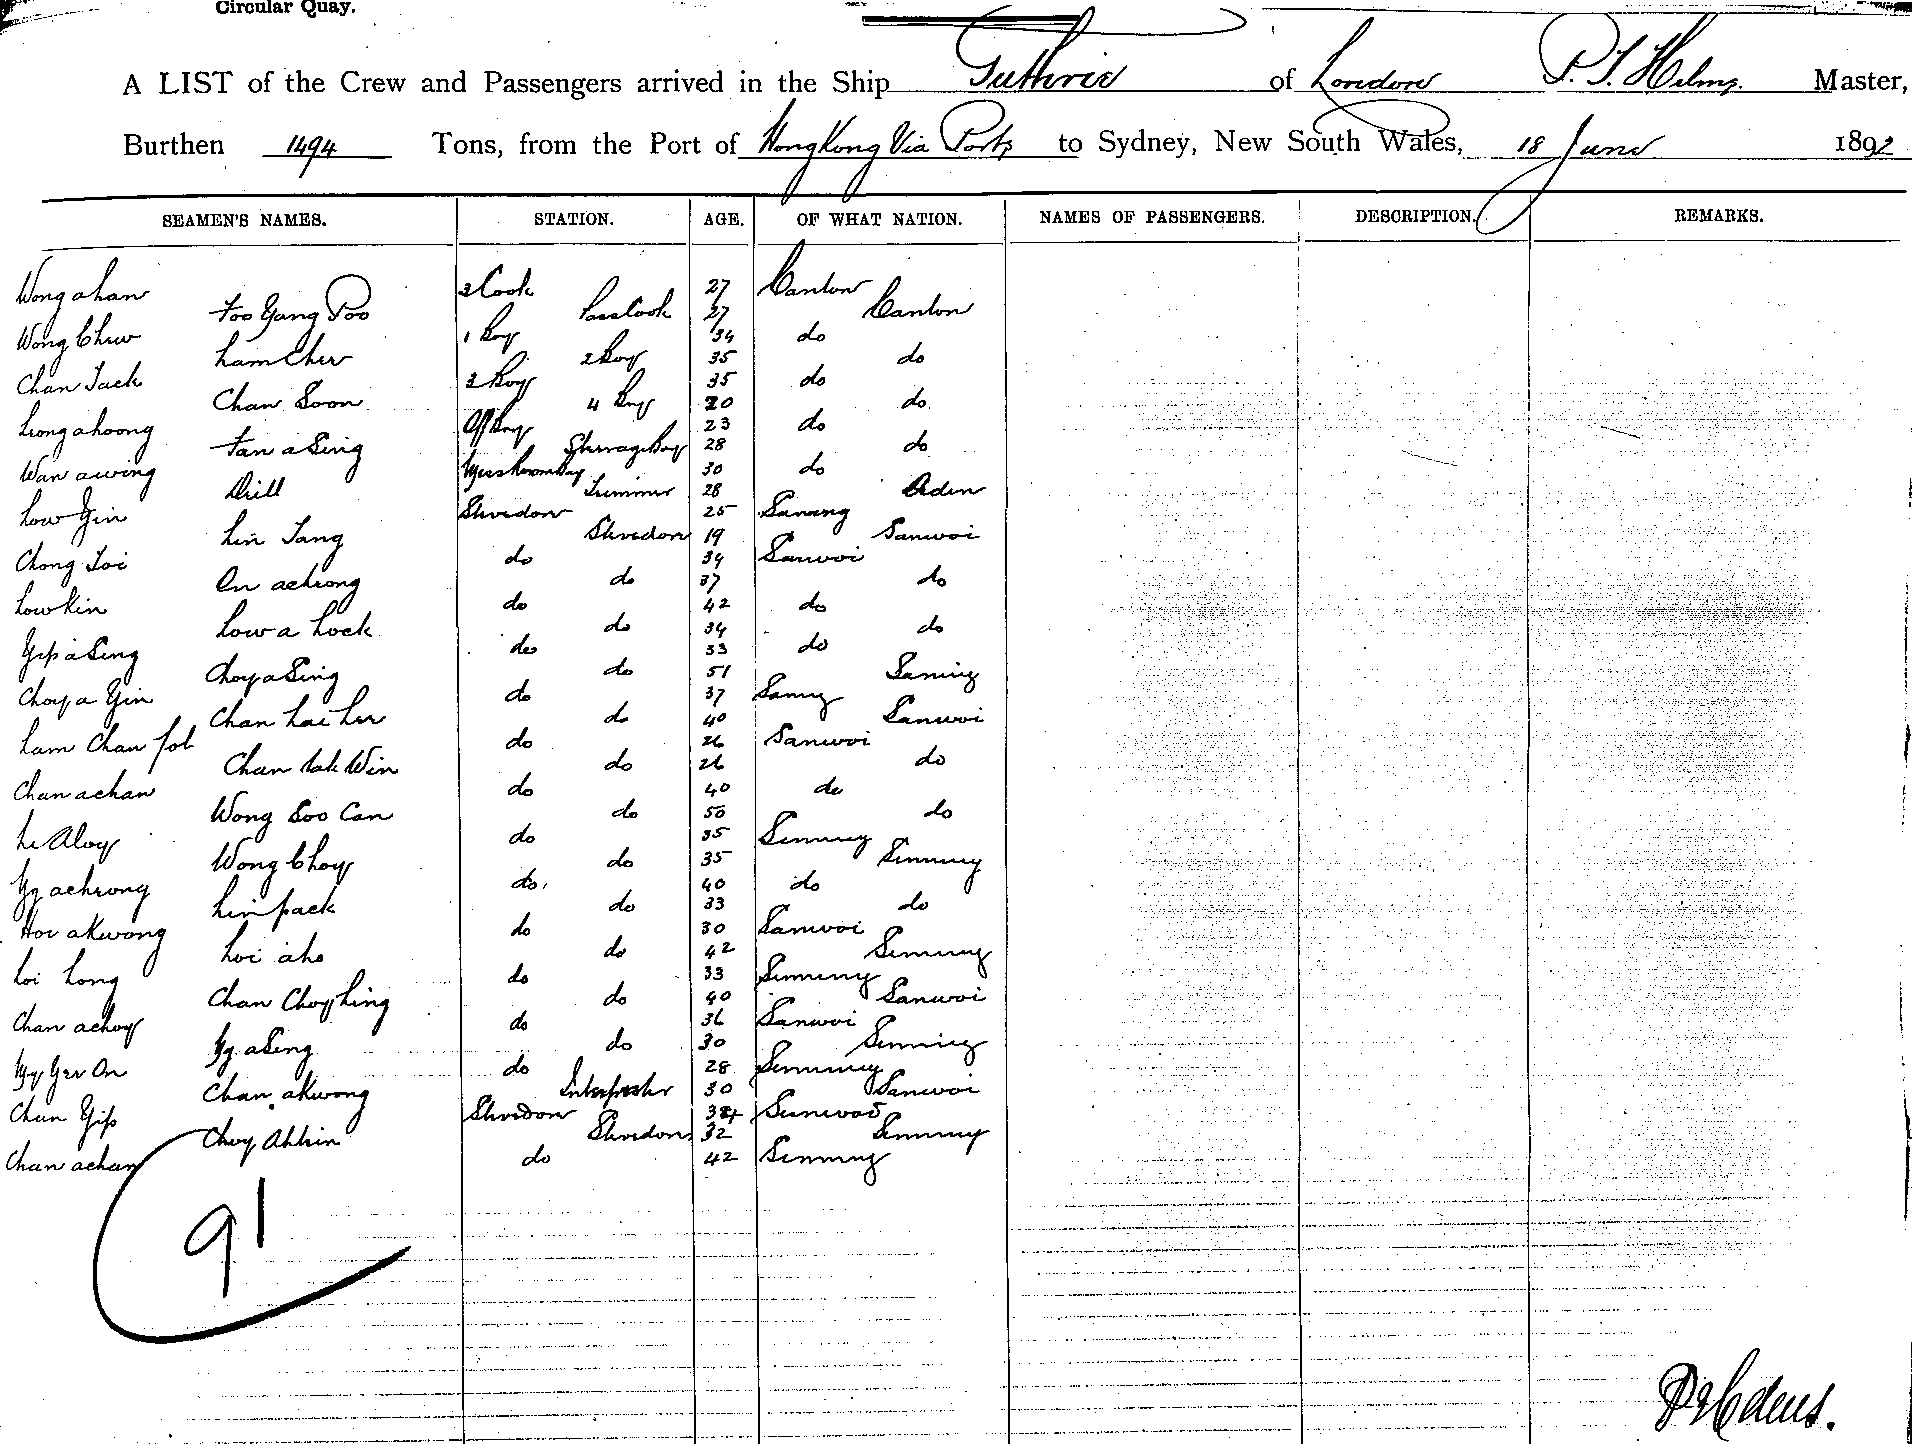 Circular Quay.
A LIST of the Crew and Passengers arrived in the Ship Guthrie of London P. T. Helms. Master,
Burthen 1494 Tons, from the Port of Hong Kong Via Ports to Sydney, New South Wales, 18 June 1892
SEAMEN'S NAMES. STATION. AGE. OF WHAT NATION. NAMES OF PASSENGERS. DESCRIPTION. REMARKS.
Wong ahan 2 Cook 27 Canton
Foo Yang Poo Pass Cook 27 Canton
Wong Chew 1 Boy 34 do
Lam Chew 2 Boy 35 do
Chan Jack 3 Boy 35 do
Chan Soon 4 Boy 20 do
Leong ahoong Off Boy 23 do
Fan a Sing Steerage Boy 28 do
Wan awing Messroom Boy 30 do
Drill Trimmer 28 Aden
Low Yin 25
Lin Tang 19 Sanwoi
Chong Loi do 34 Sanwoi
On acheong do 37 do
Low Kin do 42 do
Low a Lock do 34 do
Yip a Sing do 33 do
Choy a Sing do 51 Saming
Choy a Yin do 37
Chan Lai Her do 40 Sanwoi
Lam Chan Fok do 26 Sanwoi
Chan Win do 26 do
Chan achan do 40 do
Wong Soo Can do 50 do
Le Aloy do 35 Sinming
Wong Choy do 35 Sinming
Yg acheong do. 40 do
Lin pack do 33 do
Hoi aKwong do 30 Sanwoi
Loi aho do 42 Sinming
Loi Long do 33 Sinming
Chan Choy Ling do 40 Sanwoi
Chan achoy do 36 Sanwoi
Yg a Sing do 30 Sinning
Yee On do 28 Sinming
Chan akwong Interpreter 30 Sanwoi
Chan Yip 34
Choy Ahkin 32 Sinming
Chan achan do 42 Sinming
91